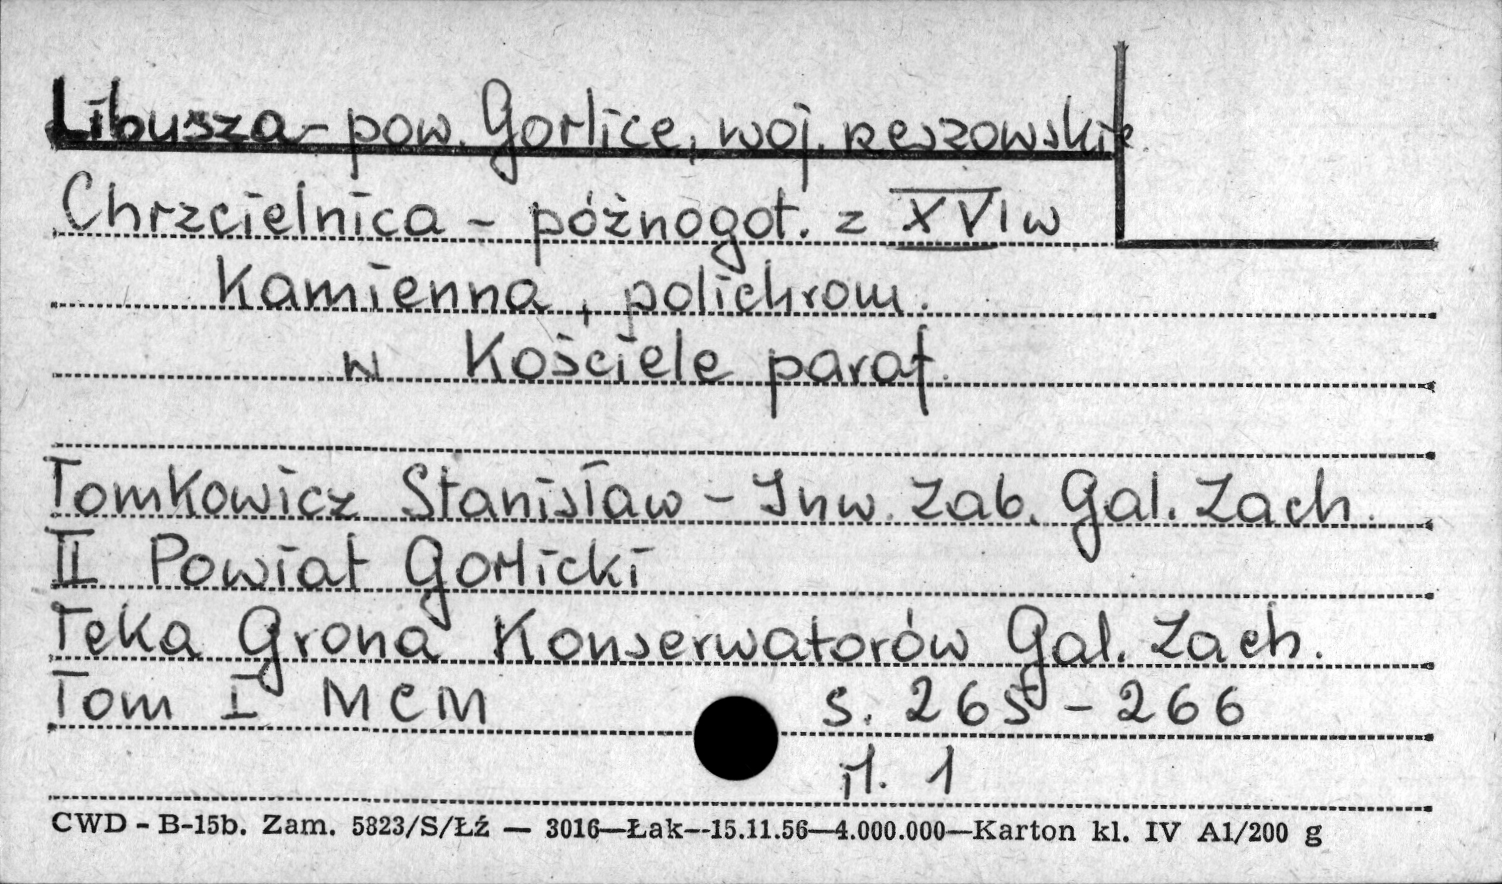 Libusza - pow. Gorlice, woj. rzeszowskie
Chrzcielnica - późnogot. z XVI w
Kamienna, polichrom.
w Kościele paraf.
Tomkowicz Stanisław - Inw. Zab. Gal. Zach.
II Powiat Gorlicki
Teka Grona Konserwatorów Gal. Zach.
Tom I MCM s. 265 - 266
il. 1
CWD - B-15b. Zam. 5823/S/Łź — 3016—Łak—15.11.56—4.000.000—Karton kl. IV A1/200 g